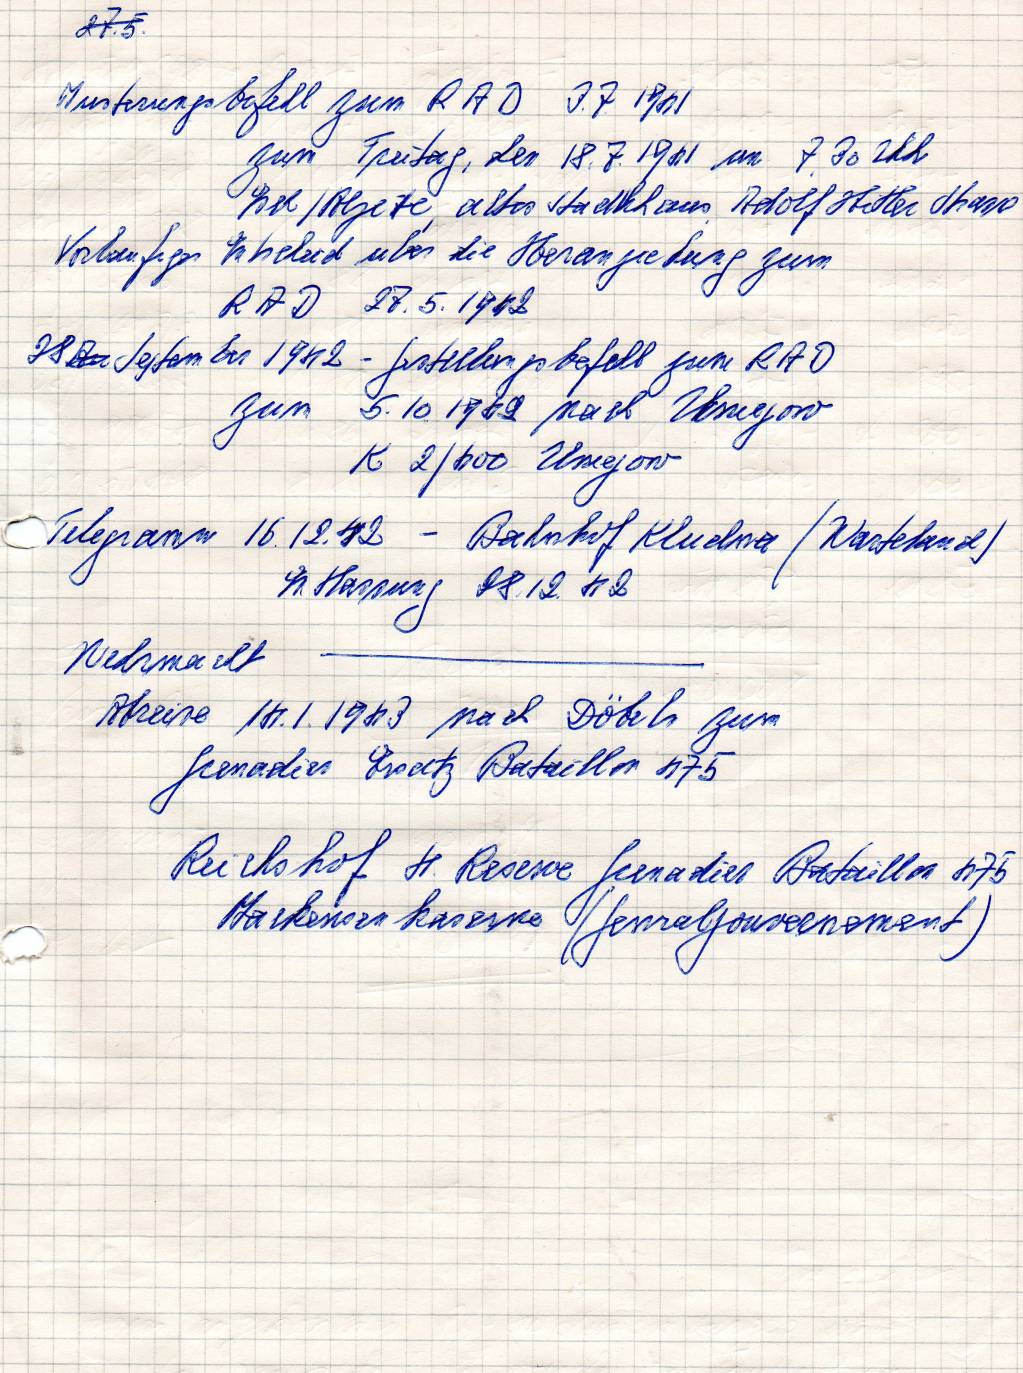 27.5.
Musterungsbefehl zum RAD 3.7.1941
zum Freitag, den 18.7.1941 um 7.30 Uhr
altes Stadthaus, Adolf Hitler Strasse
Vorläufiger Entscheid über die Heranziehung zum
RAD 27.5.1942
28. September 1942 - Gestellungsbefehl zum RAD
zum 5.10.1942 nach Uniejow
K 2/400 Uniejow
Telegramm 16.12.42 - Bahnhof Kludna (Wartheland)
Entlassung 28.12.42
Wehrmacht
Abreise 14.1.1943 nach Döbeln zum
Grenadier Ersatz Bataillon 475
Reichshof 4. Reserve Grenadier Bataillon 475
Mackensenkaserne (Generalgouvernement)